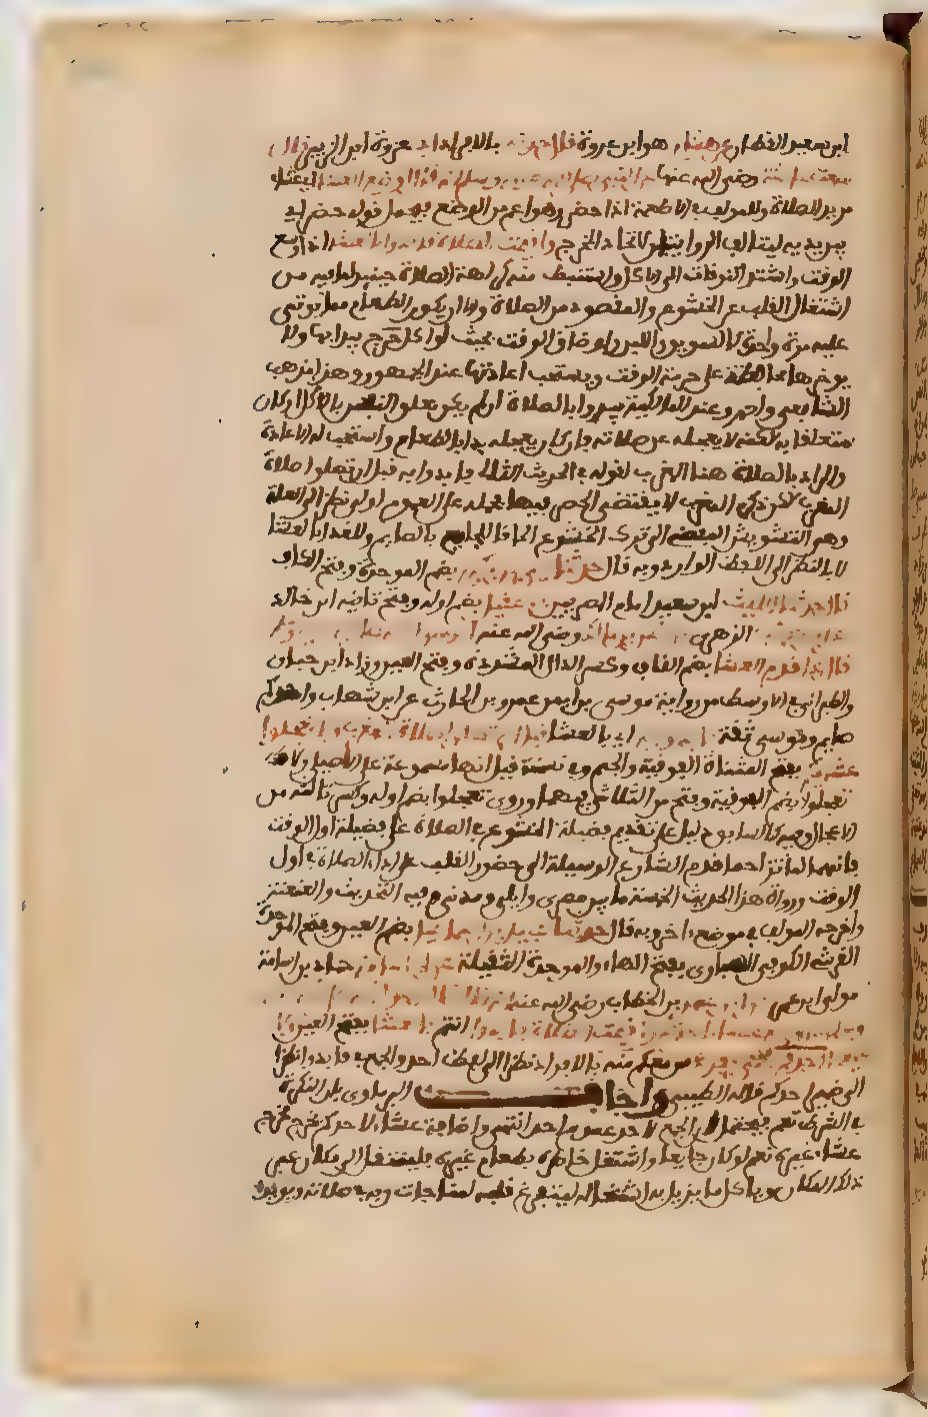 ابن سعيد القطان عن هشام هو ابن عروة قال حدثني بالافراد ابي عروة ابن الزبير قال
سمعت عائشة رضي الله عنها عن النبي صلى الله عليه وسلم انه قال اذا وضع العشاء
مريد الصلاة وللمولف في الاطعمة اذا حضر وهو اعم من الوضع فيحمل قوله حضر اي
بين يديه ليتالف الروايتان لاتحاد المخرج واقيمت الصلاة فابدءوا بالعشاء اذا وسع
الوقت واشتد التوقان الى الاكل واستنبط منه كراهة الصلاة حينئذ لما فيه من
اشتغال القلب عن الخشوع والمقصود من الصلاة الا ان يكون الطعام مما يوتى
عليه مرة واحدة كالسويق واللبن ولو ضاق الوقت بحيث لو اكل خرج يبدا بها ولا
يوخرها محافظة على حرمة الوقت ويستحب اعادتها عند الجمهور وهذا مذهب
الشافعي واحمد وعند المالكية يبدءوا بالصلاة ان لم يكن معلق النفس بالاكل او كان
متعلقا به لكنه لا يعجله عن صلاته فان كان يعجله بدا بالطعام واستحب له الاعادة
والمراد بالصلاة هنا المغرب لقوله في الحديث التالي فابدءوا به قبل ان تصلوا صلاة
المغرب لكن ذكر المغرب لا يقتضي الحصر فيها فحمله على العموم اولى نظرا الى العلة
وهي التشويش المفضي الى ترك الخشوع الحاقا للجايع بالصايم وللغداء بالعشاء
لا بالنظر الى اللفظ الوارد وبه قال حدثنا يحيى بن بكير بضم الموحدة وفتح الكاف
قال حدثنا الليث ابن سعيد امام المصريين عن عقيل بضم اوله وفتح ثانيه ابن خالد
عن ابن شهاب الزهري عن انس بن مالك رضي الله عنه ان رسول الله صلى الله عليه وسلم
قال اذا قدم العشاء بضم القاف وكسر الدال المشددة وفتح العين وزاد ابن حبان
والطبراني في الاوسط من رواية موسى بن اعين عن عمرو بن الحارث عن ابن شهاب واحدكم
صايم وموسى ثقة فابدءوا به اي بالعشاء قبل ان تصلوا صلاة المغرب ولا تعجلوا
عن عشائكم بفتح المثناة الفوقية والجيم وفي نسخة قيل انها مسموعة على الاصيلي ولا
تعجلوا بضم الفوقية وفتح من الثلاثي فيهما وروي تعجلوا بضم اوله وكسر ثالثه من
الاعجال وفيه كالسابق دليل على تقديم فضيلة الخشوع في الصلاة على فضيلة اول الوقت
فانهما لما تزاحما قدم الشارع الوسيلة الى حضور القلب على اداء الصلاة في اول
الوقت ورواة هذا الحديث الخمسة ما بين مصري وايلي ومدني وفيه التحديث والعنعنة
واخرجه المولف في موضع اخر وبه قال حدثنا عبيد بن اسماعيل بضم العين وفتح الموحدة
القرشي الكوفي الهباري بفتح الهاء والموحدة الثقيلة عن ابي اسامة حماد بن اسامة
مولى ابن عمر بن الخطاب رضي الله عنه قال قال رسول الله
اذا وضع عشاء احدكم واقيمت الصلاة فابدءوا انتم بالعشاء بفتح العين ولا
يعجل احدكم حتى يفرغ من معكم منه بالافراد نظرا الى لفظ احد والجمع في فابدءوا نظرا
الى ضمير احدكم قاله الطيبي واجاب البرماوي بان النكرة
في الشرط تعم فيحتمل ان الجمع لاجل عموم احد انتهى واضافة عشاء لاحدكم تخرج
عشاء غيره نعم لو كان جايعا واشتغل خاطره بطعام غيره فلينتقل الى مكان غير
ذلك المكان وياكل ما يزيل به اشتغاله ليتفرغ قلبه لمناجات ربه في صلاته ويويد